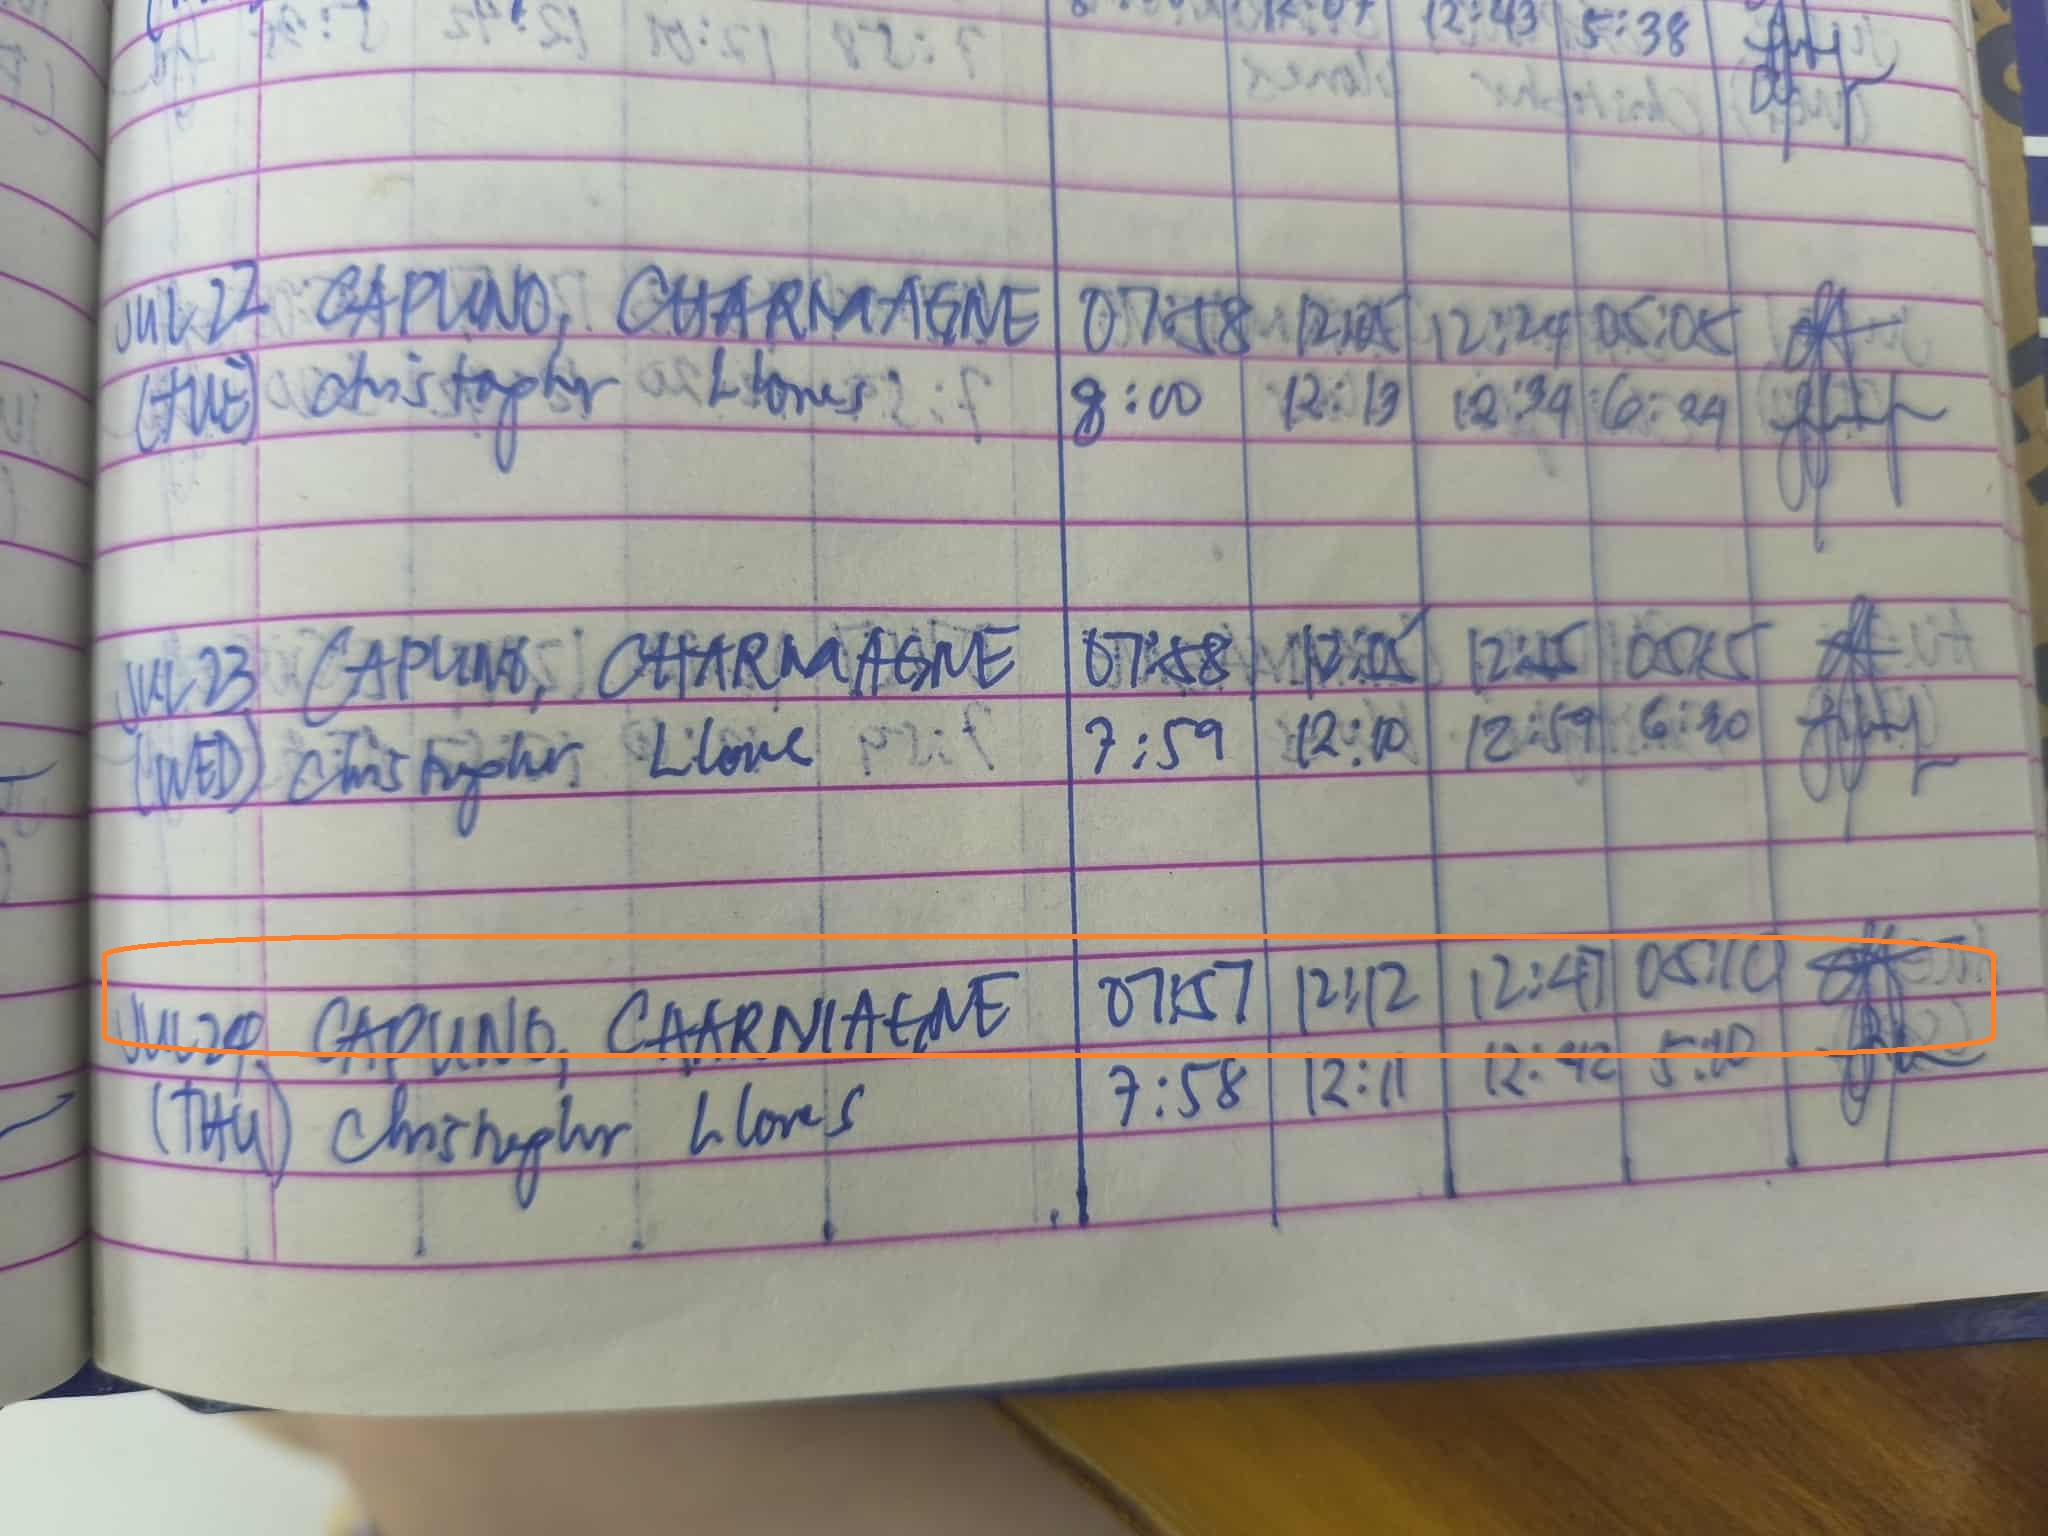 12:43 5:38
JUL 22 CAPUNO, CHARMAGNE 07:58 12:05 12:24 05:05
(TUE) Christopher Llones 8:00 12:13 12:34 6:24
JUL 23 CAPUNO, CHARMAGNE 07:58 12:05 12:25 05:15
(WED) Christopher Llone 7:59 12:10 12:59 6:20
JUL 24 CAPUNO, CHARMAGNE 07:57 12:12 12:47 05:10
(THU) Christopher Llones 7:58 12:11 12:42 5:10